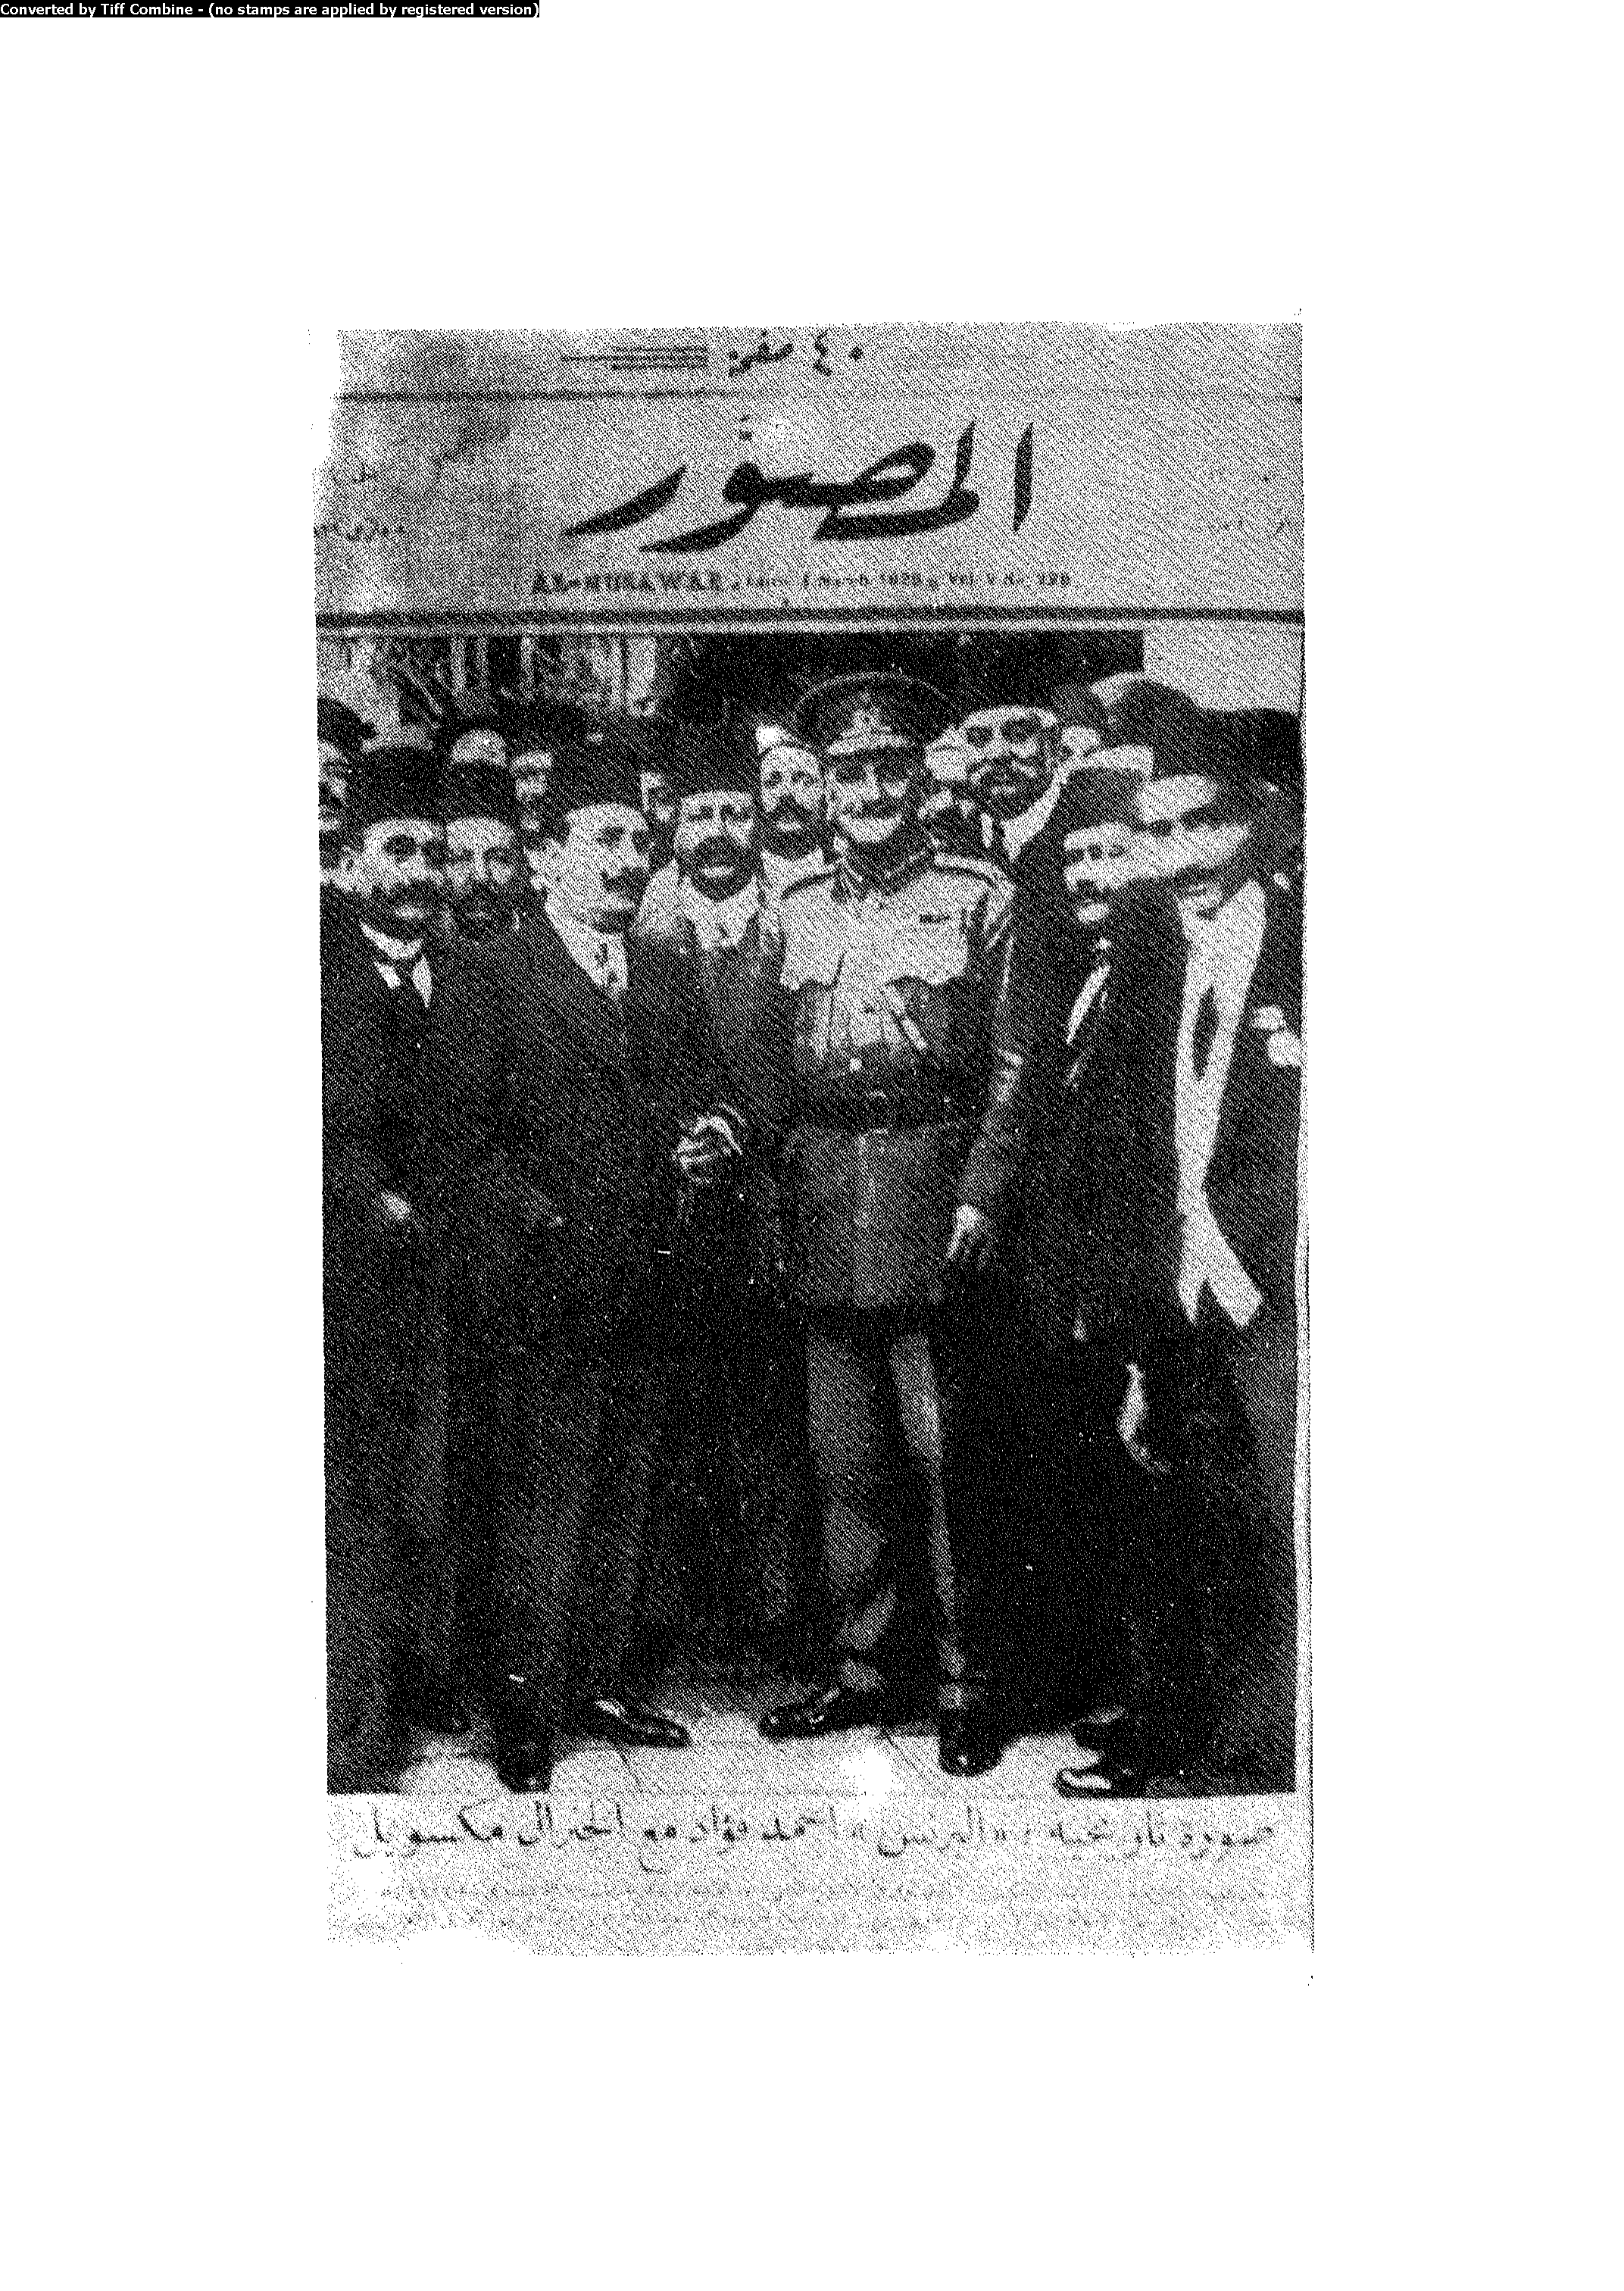 Converted by Tiff Combine - (no stamps are applied by registered version)
٤٠ صفحة
المصوّر
AL-MUSAWAR
صورة تاريخية : «البرنس» احمد فؤاد مع الجنرال مكسويل